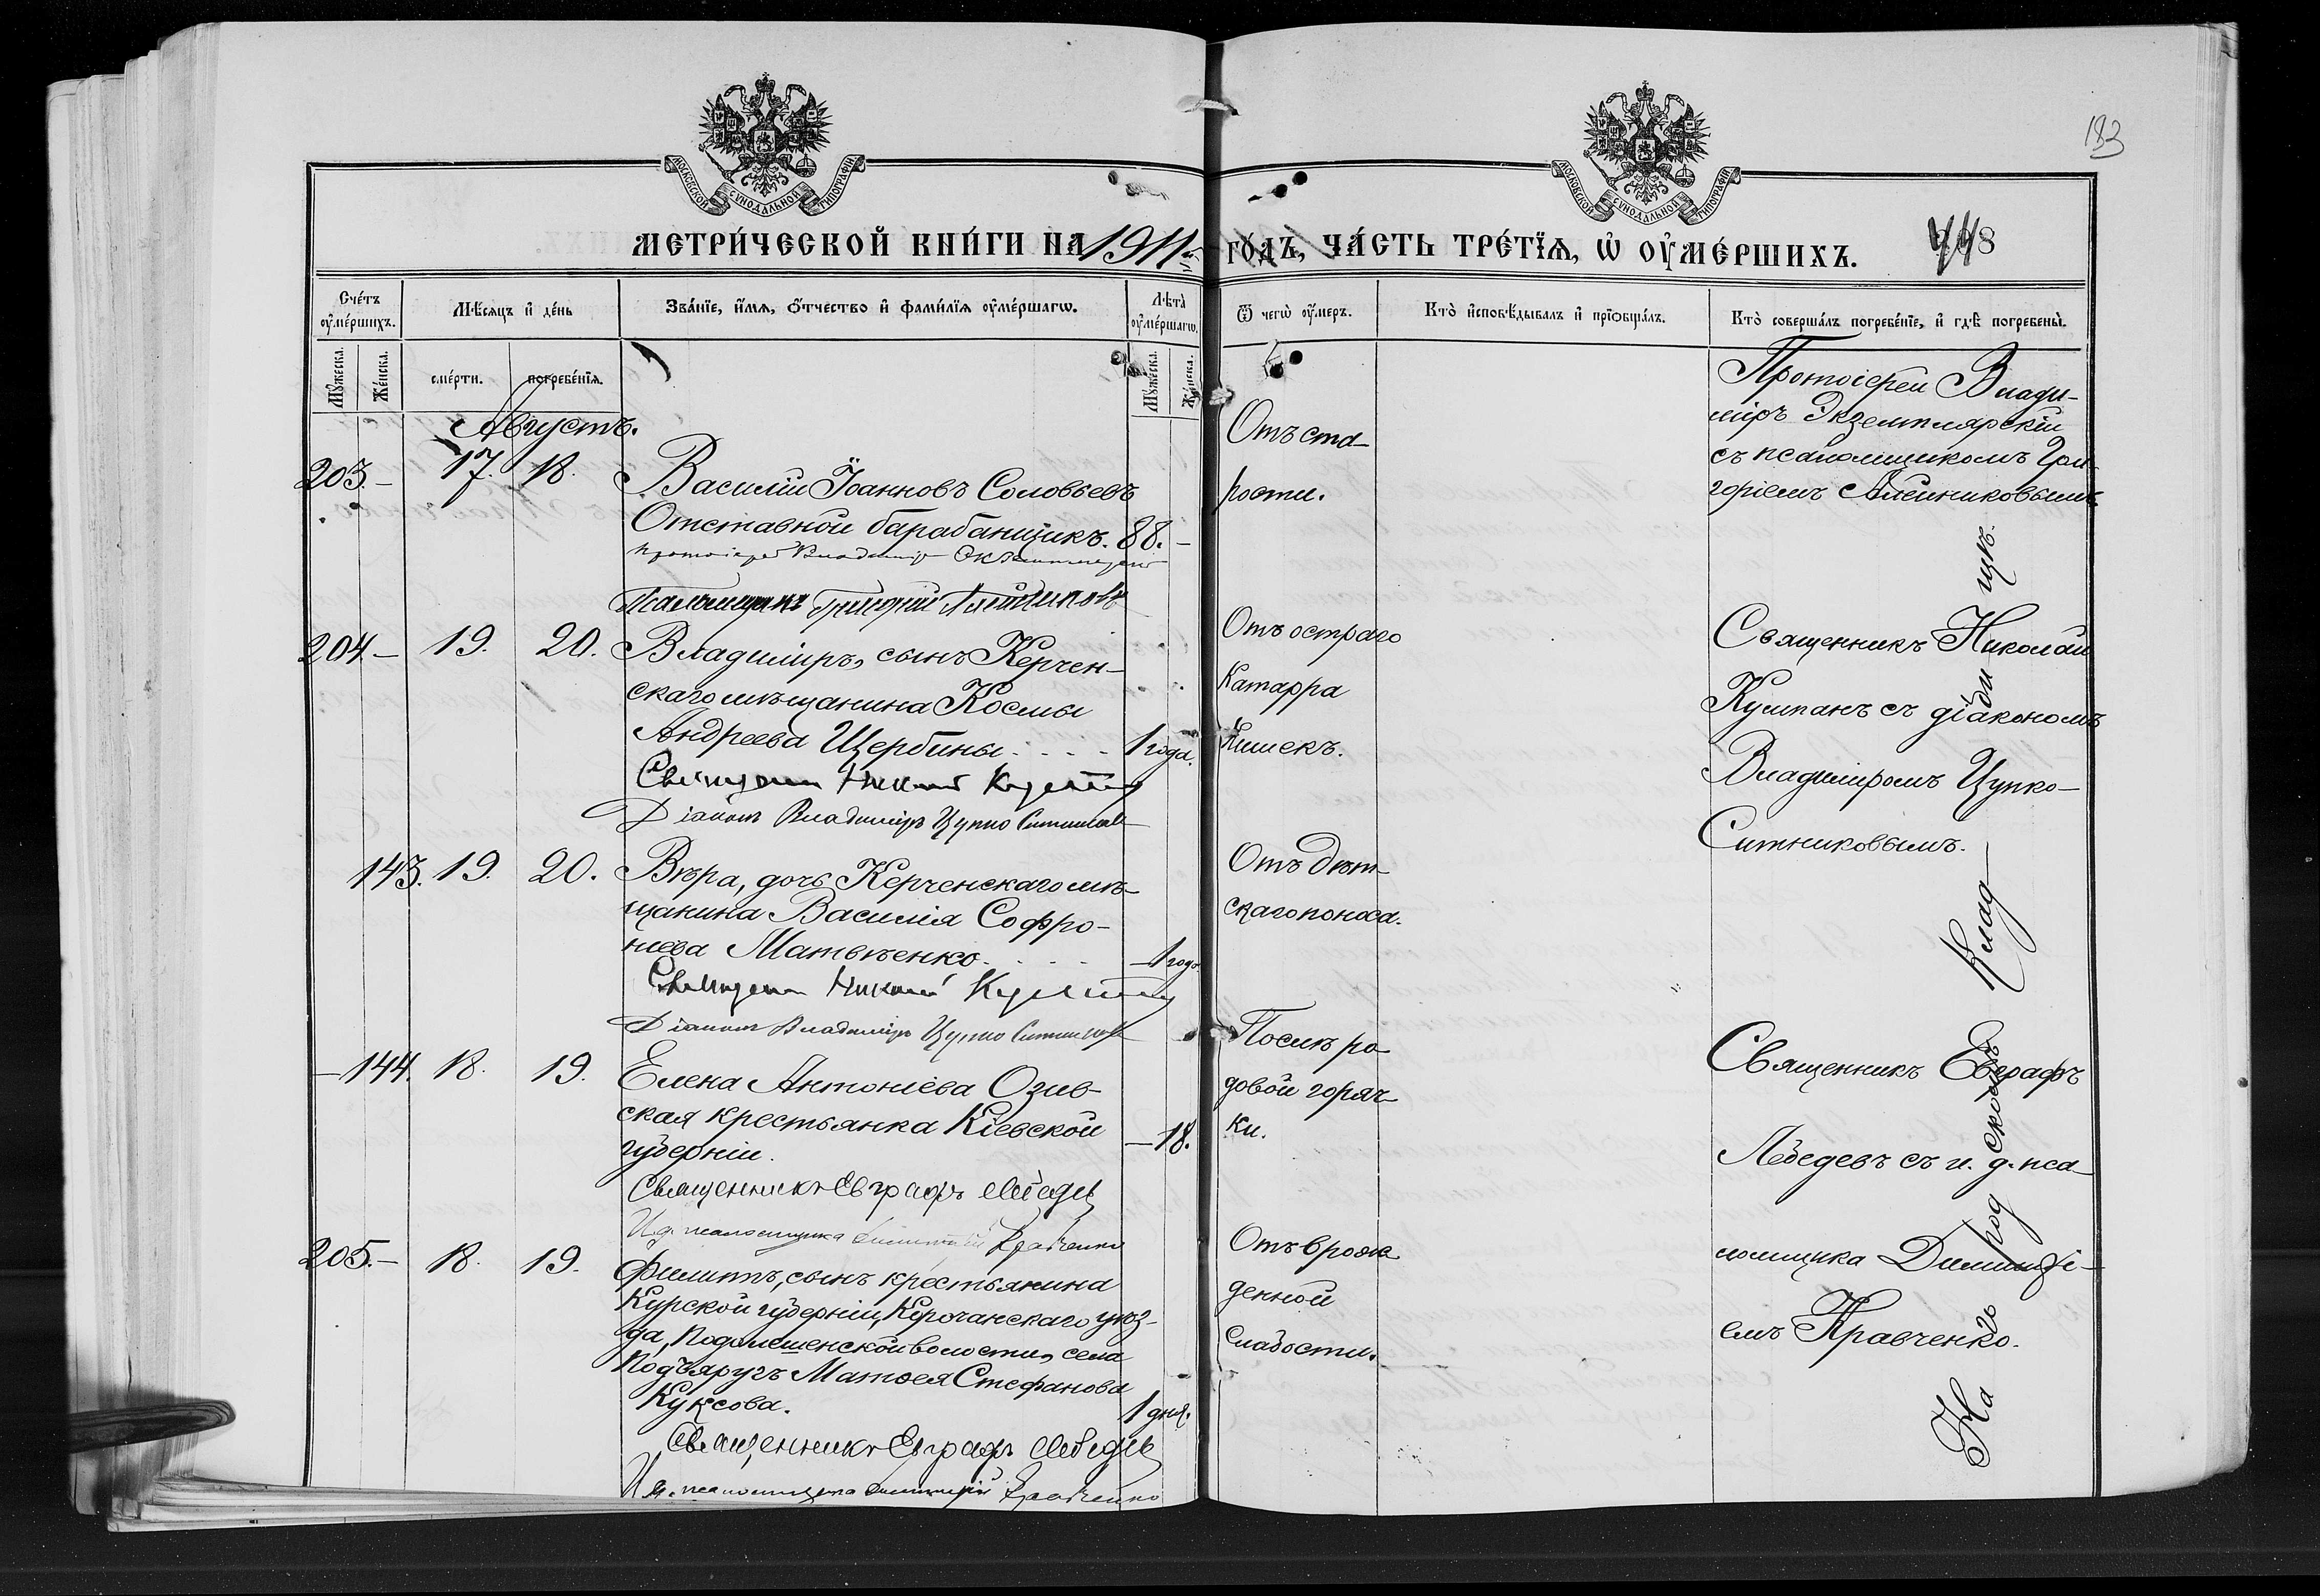 183
МОСКОВСКОЙ СѴНОДАЛЬНОЙ ТИПОГРАФІИ
МОСКОВСКОЙ СѴНОДАЛЬНОЙ ТИПОГРАФІИ
МЕТРИ́ЧЕСКОЙ КНИ́ГИ НА 1911й ГО́ДЪ, ЧА́СТЬ ТРЕ́ТЇѦ, Ѡ҆ ОУ҆МЕ́РШИХЪ.
Сче́тъ оу҆ме́ршихъ.
Мѣ́сяцъ и҆ де́нь
Зва́нїе, и҆́мѧ, ѻ҆́тчество и҆ фами́лїѧ оу҆ме́ршагѡ.
Лѣ́та оу҆ме́ршагѡ.
Ѿ чегѡ̀ оу҆́меръ.
Кто̀ и҆сповѣ́дывалъ и҆ прїѡбща́лъ.
Кто̀ соверша́лъ погребе́нїе, и҆ гдѣ̀ погребены̀.
Мꙋ́жеска.
Же́нска.
сме́рти.
погребе́нїѧ.
Мꙋ́жеска.
Же́нска.
Августъ.
203. –
17.
18.
Василій Іоанновъ Соловьевъ
Отставной барабанщикъ.
88. –
Протоіерей Владиміръ Экземплярскій
Псаломщикъ Григорій Алейниковъ
Отъ ста-
рости.
Протоіерей Влади-
міръ Экземплярскій
съ псаломщикомъ Гри-
горіемъ Алейниковымъ
204. –
19.
20.
Владиміръ, сынъ Керчен-
скаго мѣщанина Космы
Андреева Щербины
1 года.
Священникъ Николай Кушпанъ
Діаконъ Владиміръ Цупко Ситниковъ
Отъ остраго
катарра
кишекъ.
Священникъ Николай
Кушпанъ съ діакономъ
Владиміромъ Цупко-
Ситниковымъ.
143.
19.
20.
Вѣра, дочь Керченскаго мѣ-
щанина Василія Софро-
ніева Матвѣенко.
– 1 года
Священникъ Николай Кушпанъ
Діаконъ Владиміръ Цупко Ситниковъ
Отъ дѣт-
скаго поноса.
– 144.
18.
19.
Елена Антоніева Озив-
ская крестьянка Кіевской
губерніи.
– 18.
Священникъ Евграфъ Лебедев
И. д. псаломщика Димитрій Кравченко
Послѣ ро-
довой горяч-
ки.
Священникъ Евграфъ
Лебедевъ съ и. д. пса-
ломщика Димитрі-
емъ Кравченко.
205. –
18.
19.
Филиппъ, сынъ крестьянина
Курской губерніи, Корочанскаго уѣз-
да, Подолешенской волости, села
Подъяругъ Матѳея Стефанова
Куксова.
1 дня.
Священникъ Евграфъ Лебедев
И. д. псаломщика Димитрій Кравченко
Отъ врож-
денной
слабости.
На городскомъ кладбищѣ.